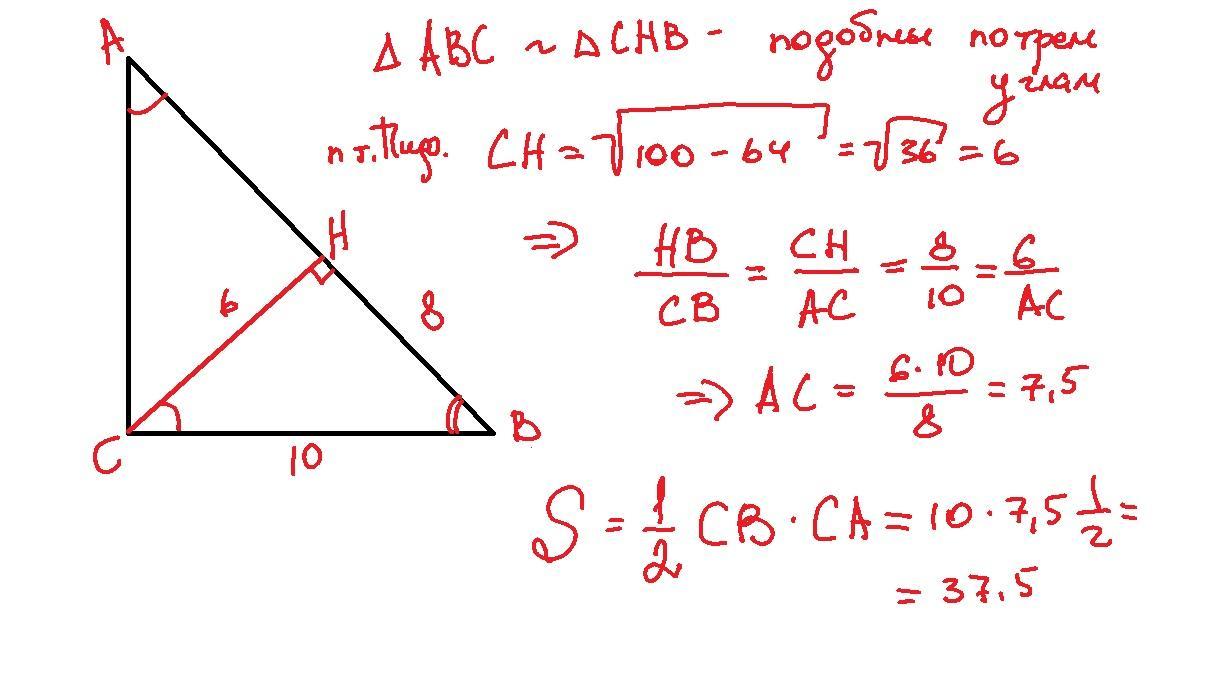 A
Δ ABC ~ Δ CHB - подобны по трем
углам
п т. Пифо. CH = √100 - 64 = √36 = 6
H
⇒ HB/CB = CH/AC = 8/10 = 6/AC
6
8
⇒ AC = 6·10/8 = 7,5
C
B
10
S = 1/2 CB · CA = 10 · 7,5 1/2 =
= 37,5